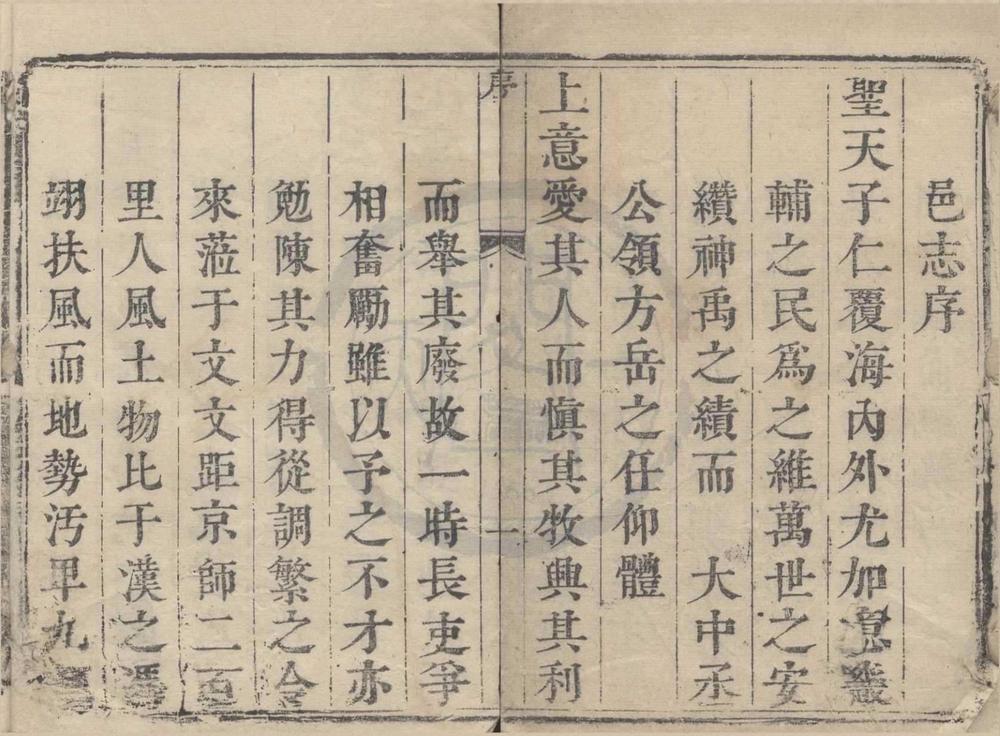 邑志序
聖天子仁覆海內外尤加意畿
輔之民爲之維萬世之安
纘神禹之績而　大中丞
公領方岳之任仰體
上意愛其人而愼其牧興其利
序
一
而舉其廢故一時長吏爭
相奮勵雖以予之不才亦
勉陳其力得從調繁之令
來蒞于文文距京師二百
里人風土物比于漢之馮
翊扶風而地勢汚卑九